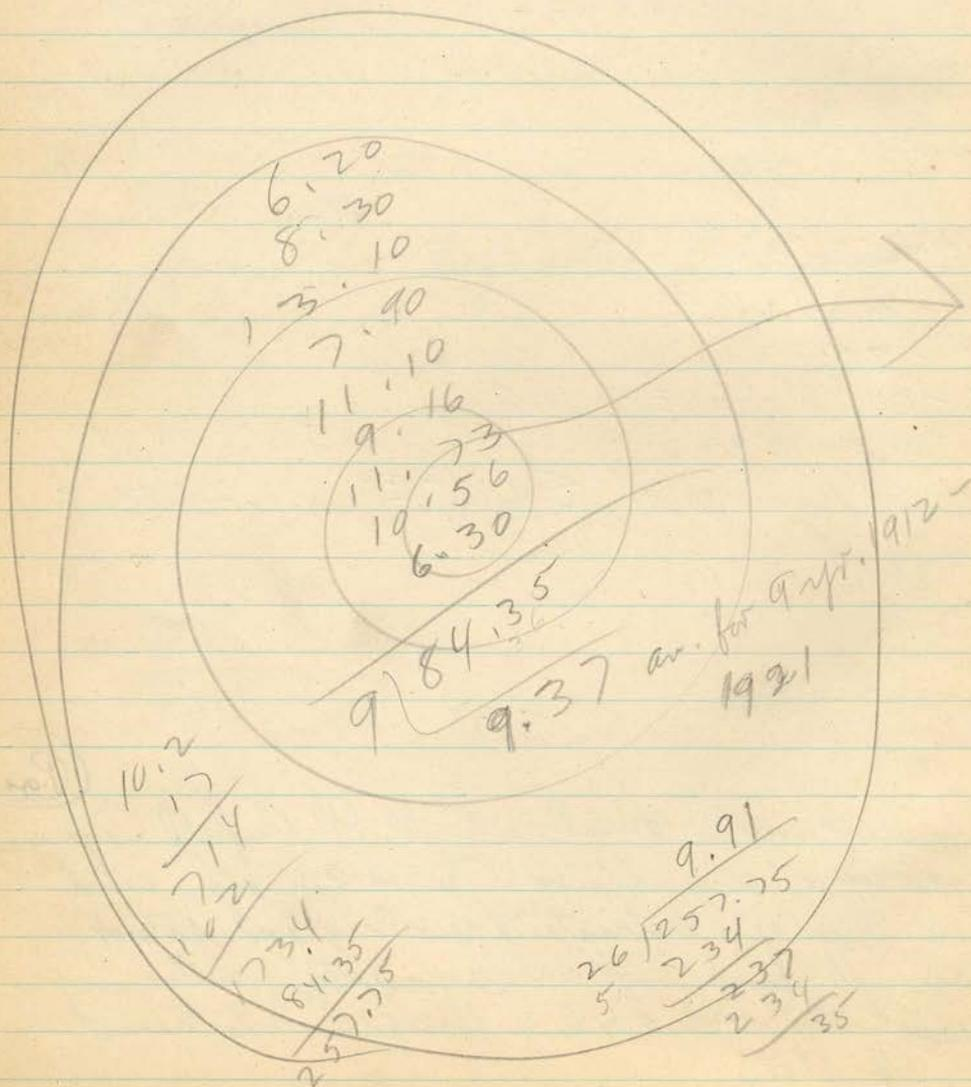 6.20
8.30
13.10
7.90
11.10
9.16
11.73
10.56
6.30
84.35
9
9.37 av. for 9 yr. 1912-
1921
10.2
17
714
102
173.4
84.35
257.75
9.91
26 257.75
5 234
237
234
35